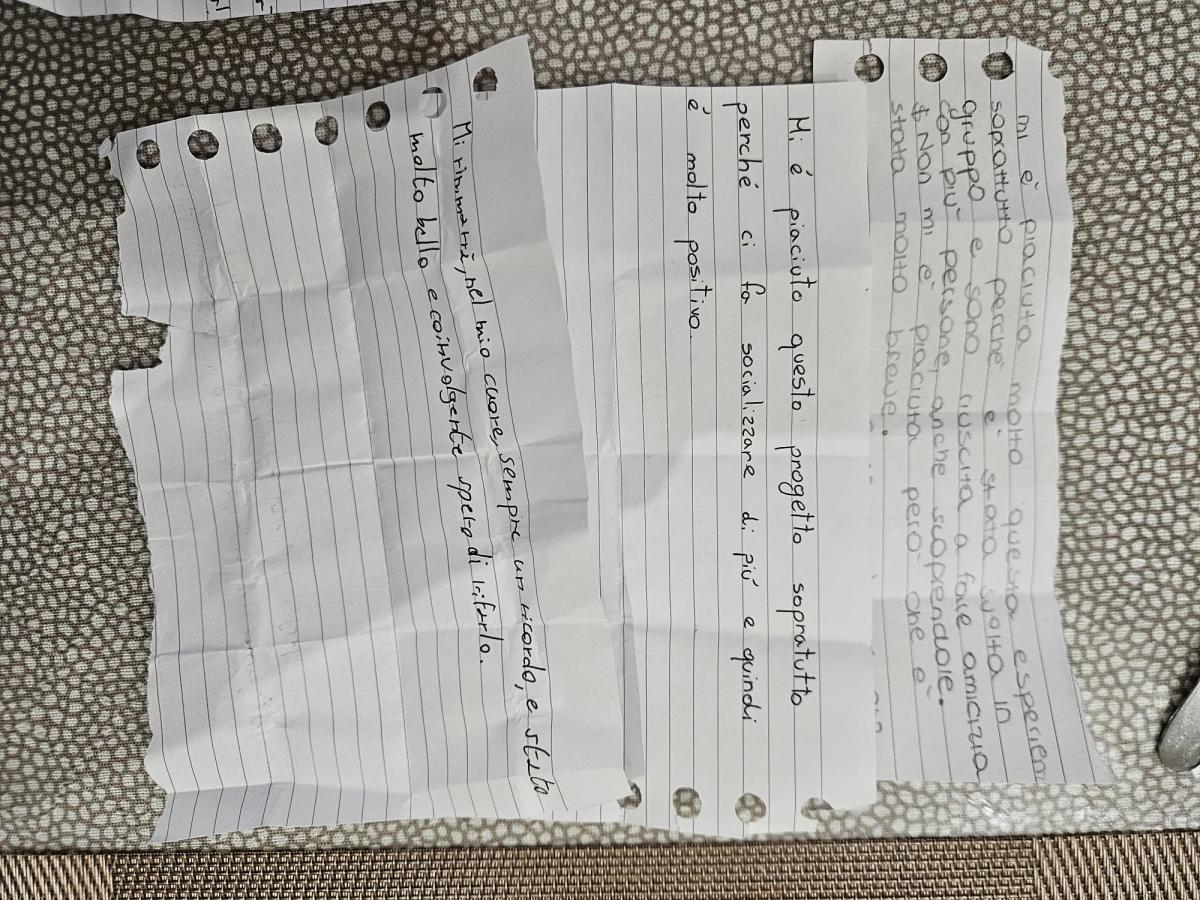 mi è piaciuta molto questa esperien
soprattutto perché è stata svolta in
gruppo e sono riuscita a fare amicizia
con più persone, anche scoprendole.
Non mi è piaciuta però che è
stata molto breve.
Mi é piaciuto questo progetto sopratutto
perché ci fa socializzare di piú e quindi
é molto positivo.
Mi rimarrà, nel mio cuore, sempre un ricordo, e stato
molto bello e coinvolgente spero di rifarlo.